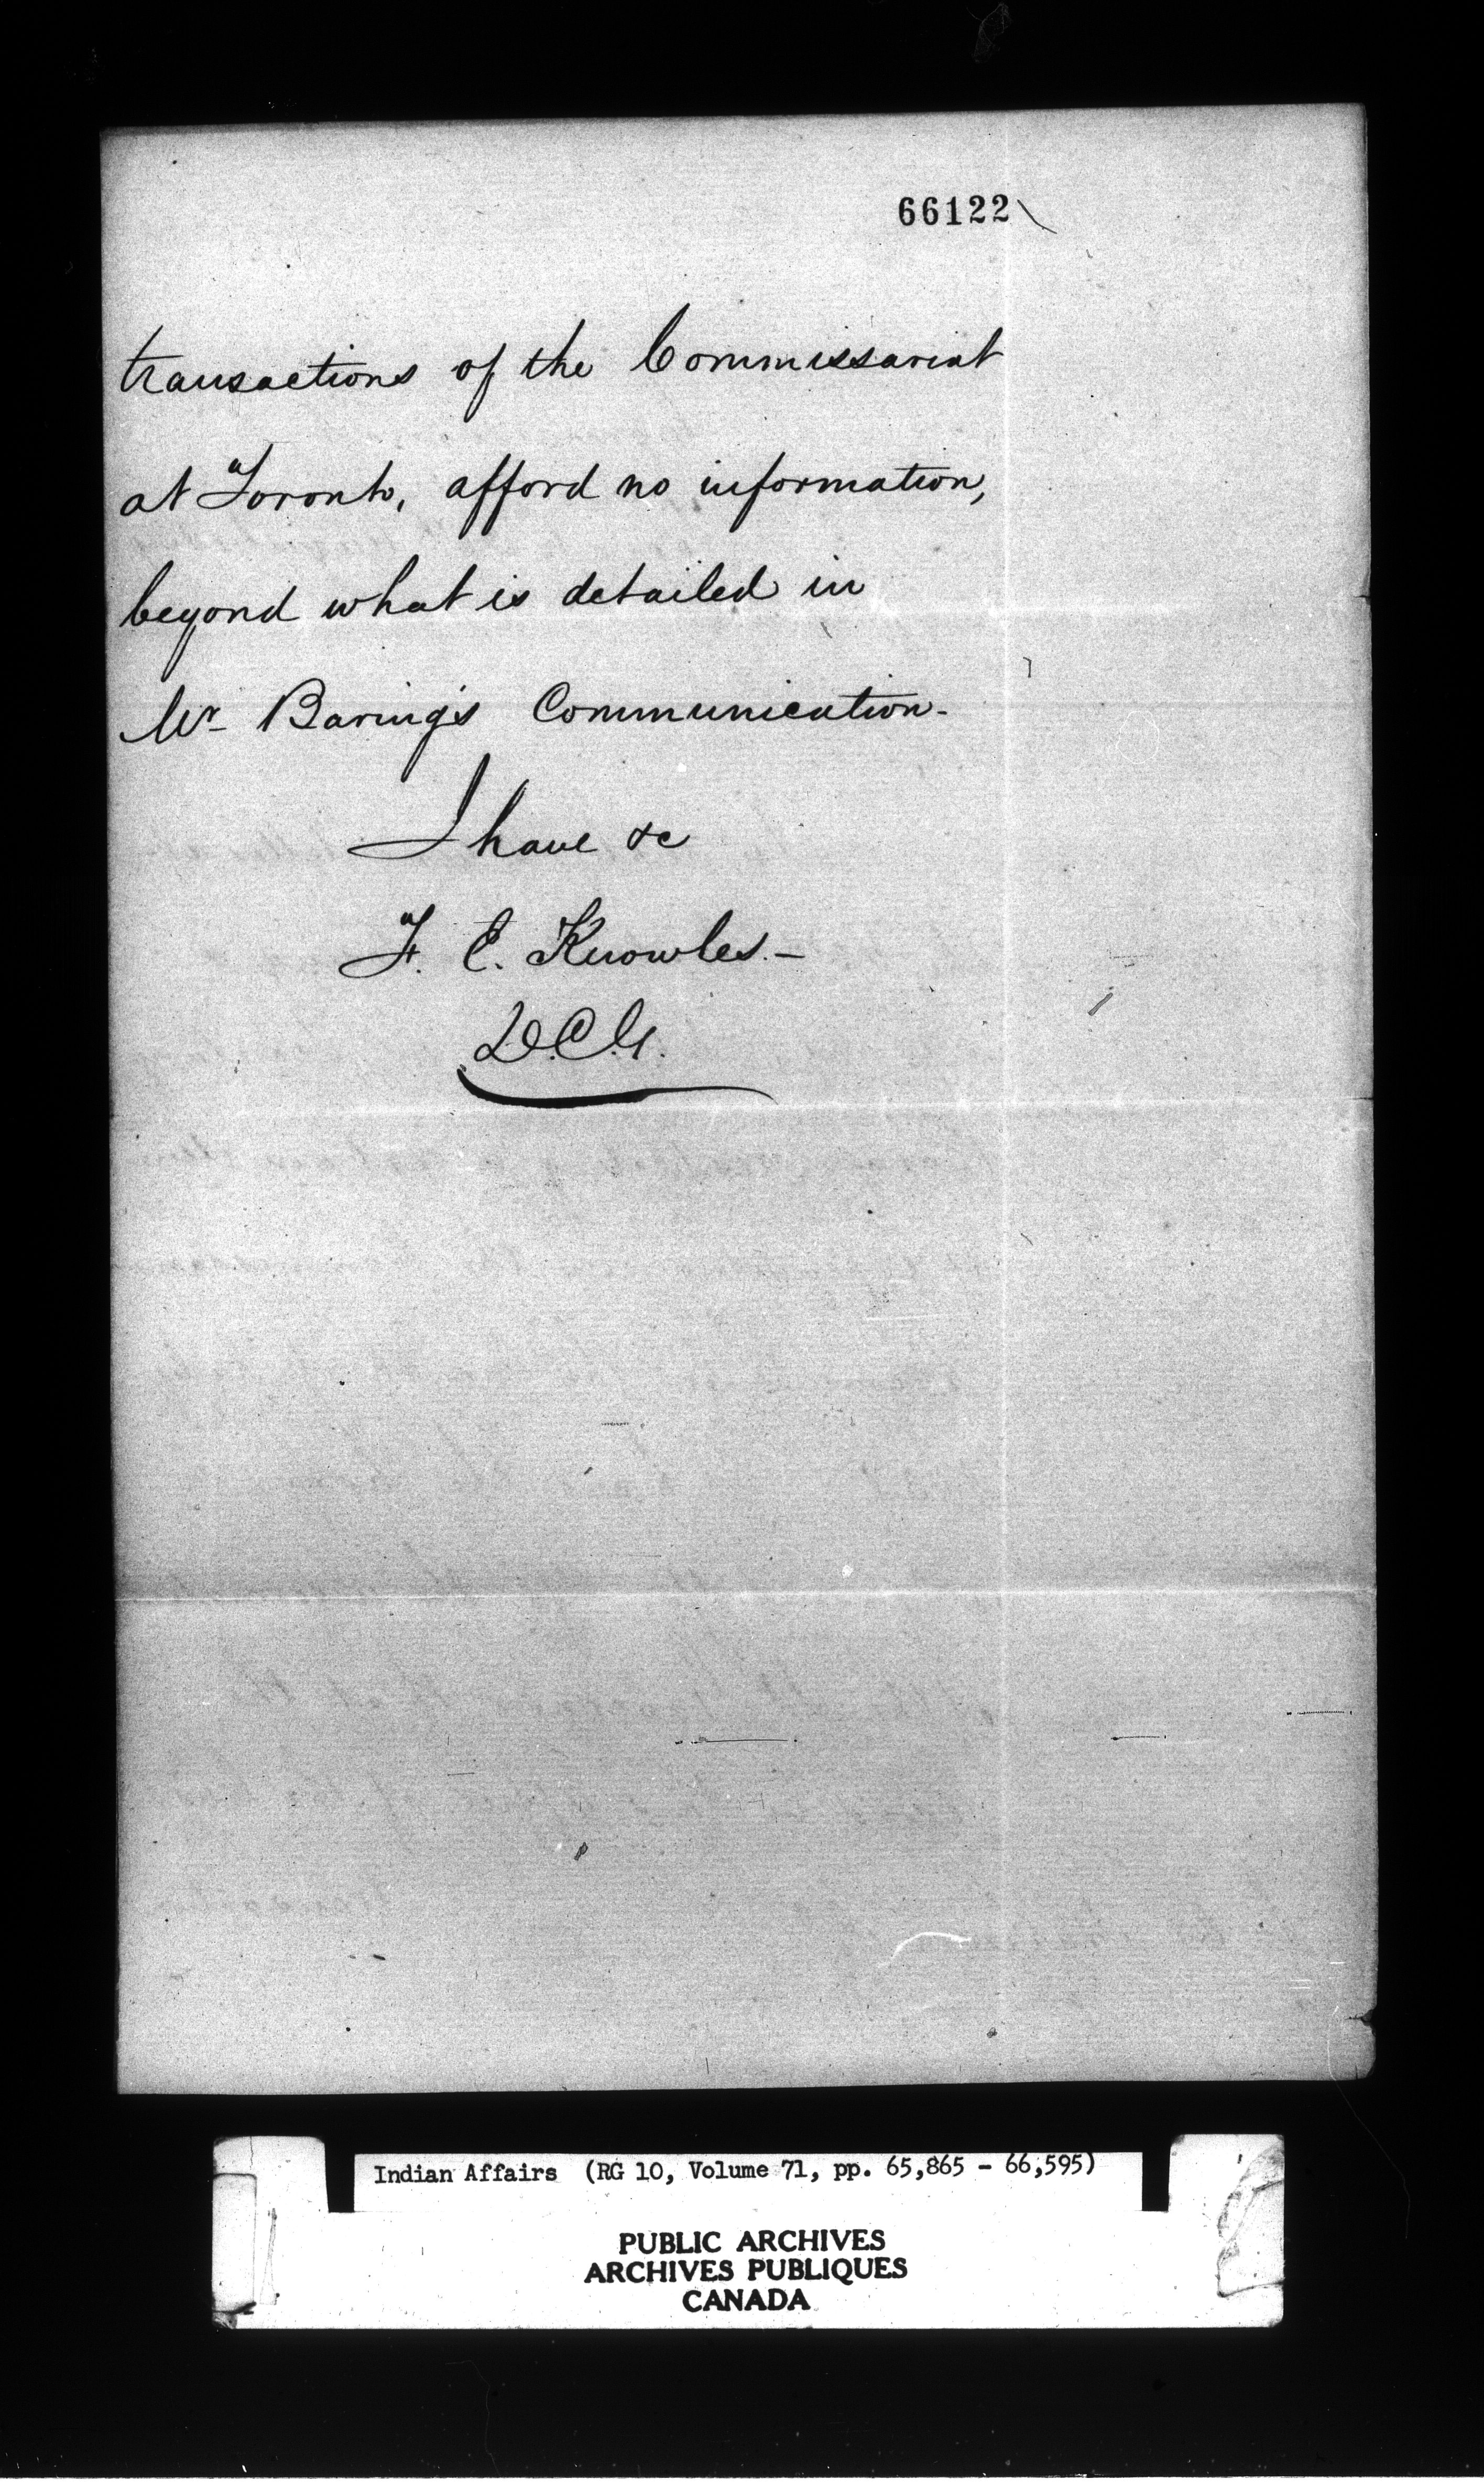 66122
transactions of the Commissariat
at Toronto, afford no information,
beyond what is detailed in
Mr Baring's Communication-
I have &c
F. E. Knowles.-
D.C.G.
Indian Affairs (RG 10, Volume 71, pp. 65,865 - 66,595)
PUBLIC ARCHIVES
ARCHIVES PUBLIQUES
CANADA